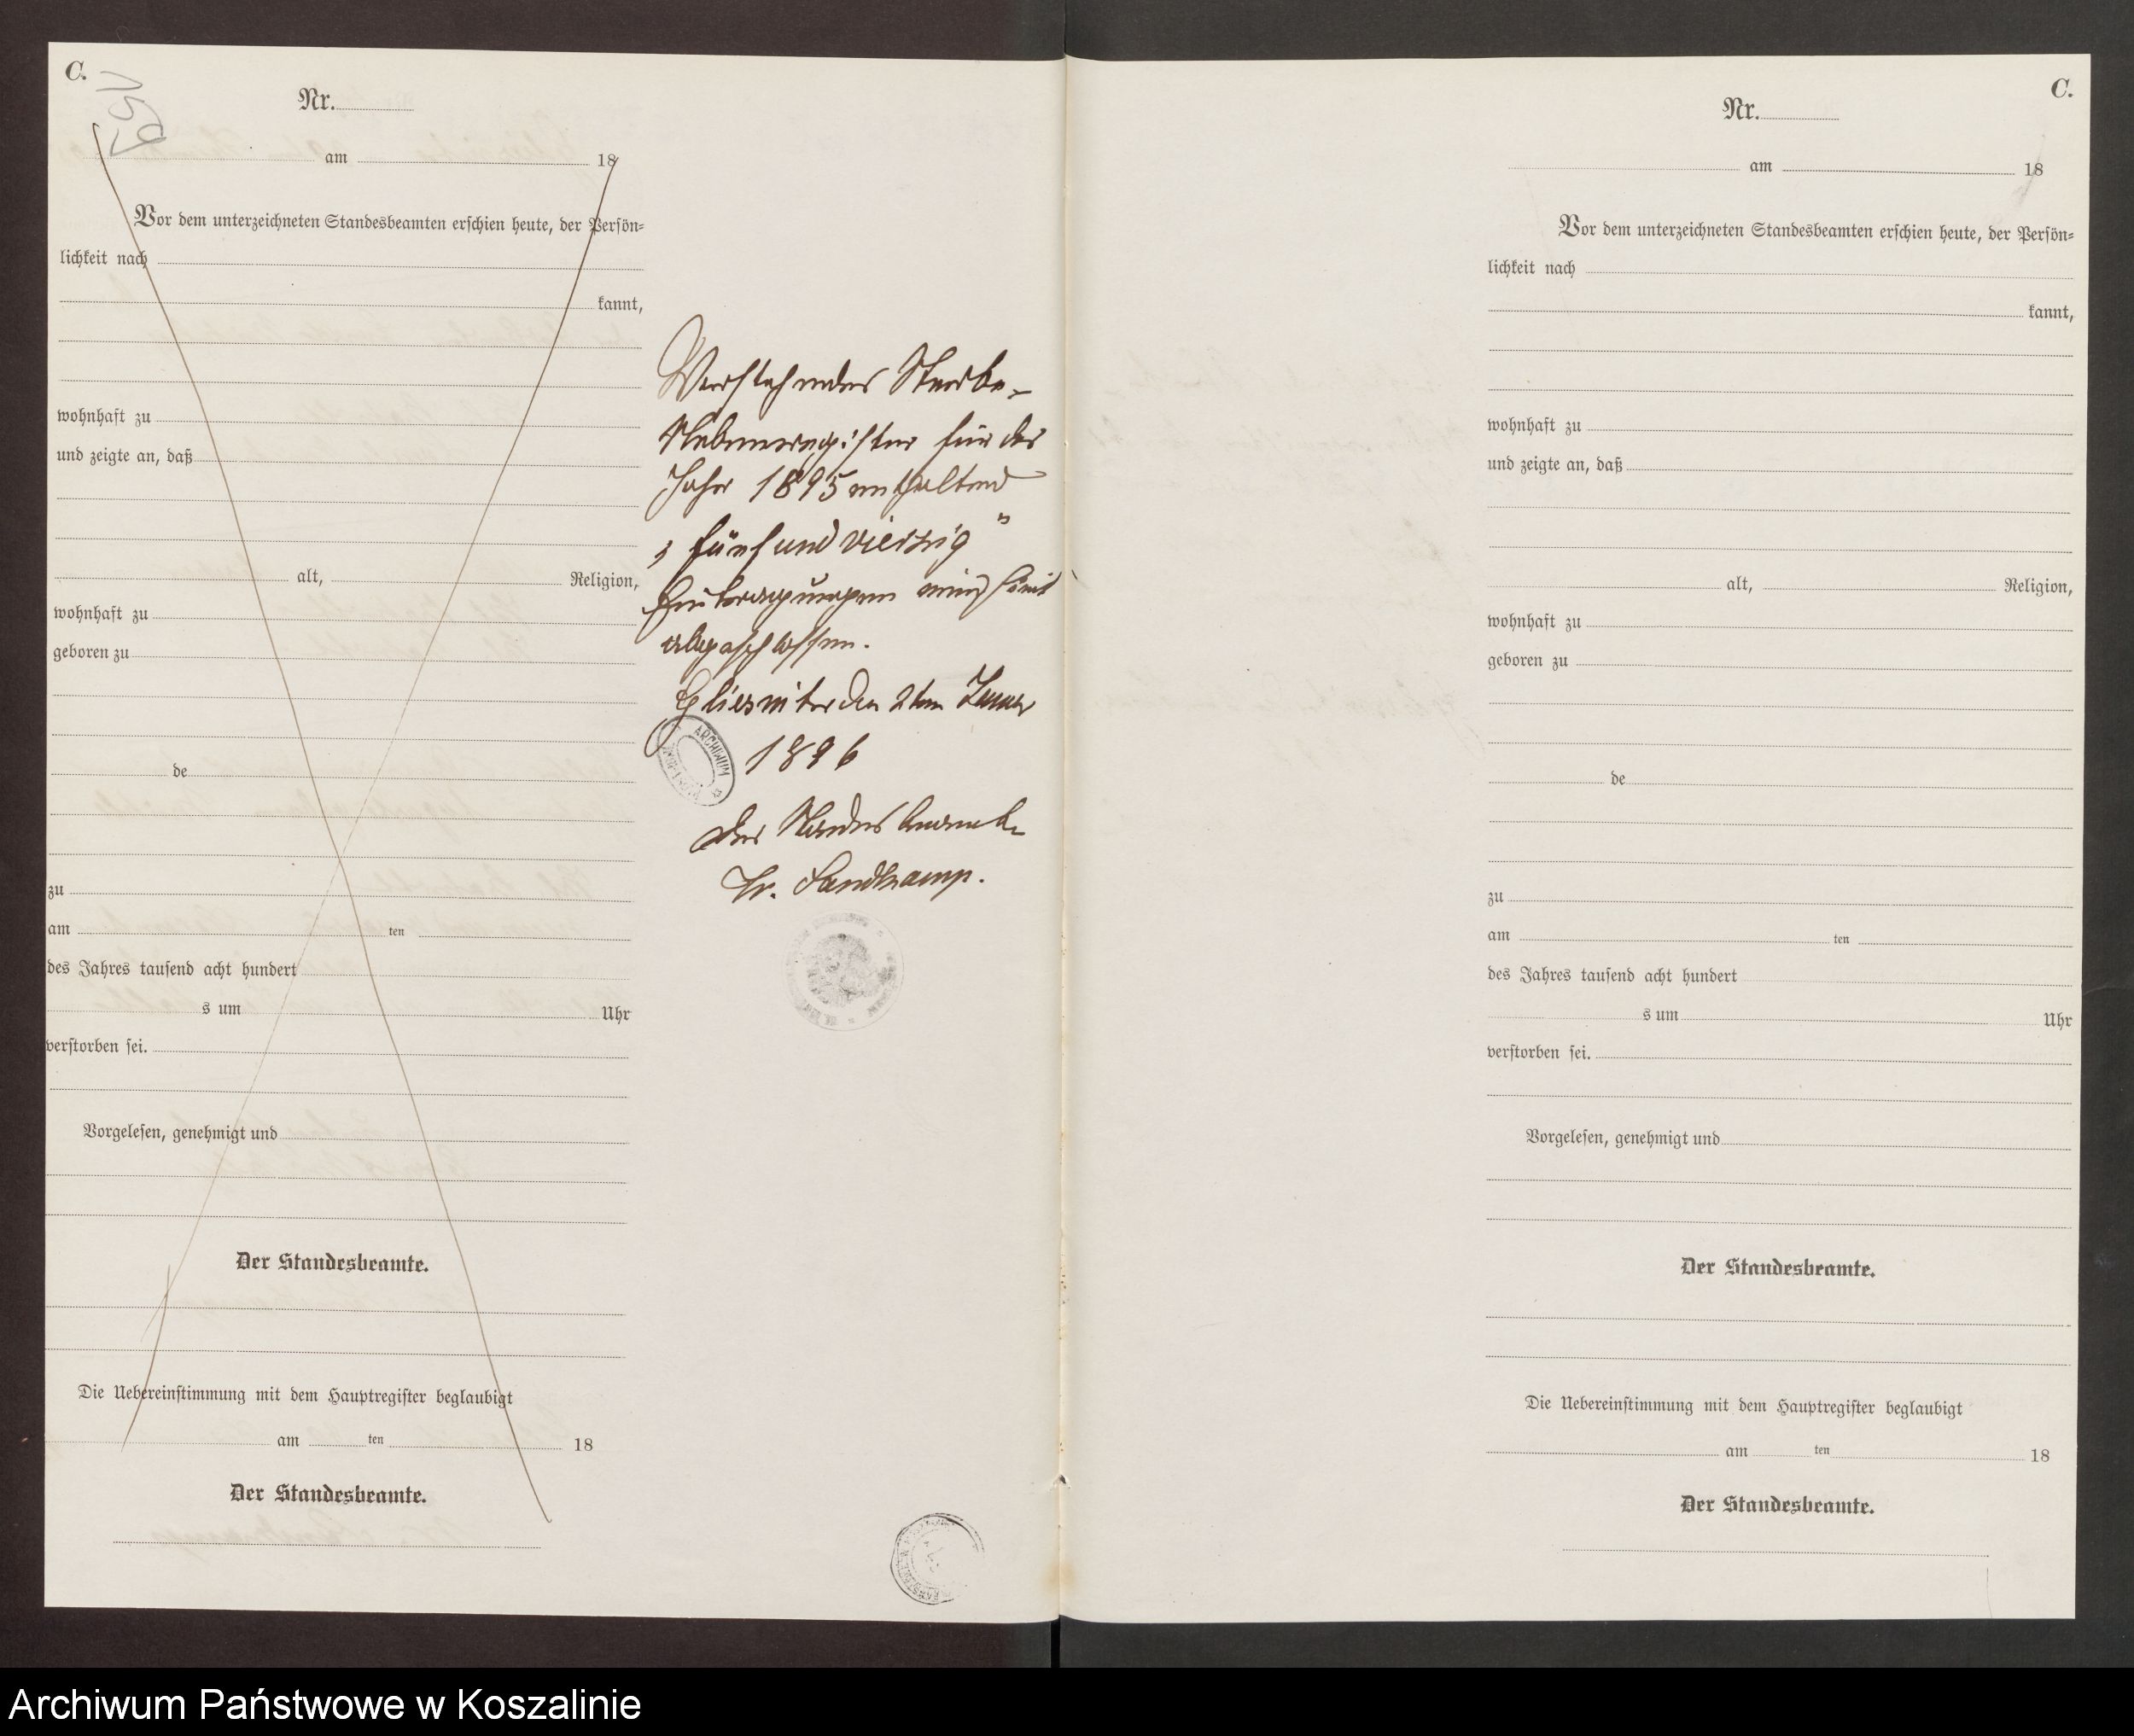 C.
159
Nr.
am 18
Vor dem unterzeichneten Standesbeamten erschien heute, der Persön-
lichkeit nach
kannt,
wohnhaft zu
und zeigte an, daß
alt, Religion,
wohnhaft zu
geboren zu
de
zu
am ten
des Jahres tausend acht hundert
s um Uhr
verstorben sei.
Vorgelesen, genehmigt und
Der Standesbeamte.
Die Uebereinstimmung mit dem Hauptregister beglaubigt
am ten 18
Der Standesbeamte.
Vorstehendes Sterbe-
Nebenregister für das
Jahr 1895 enthaltend
„fünfund vierzig"
Eintragungen wird hiermit
abgeschlossen.
den 2ten Januar
1896
ARCHIWUM
Der Standesbeamte
Fr. Sandkamp.
C.
Nr.
am 18
Vor dem unterzeichneten Standesbeamten erschien heute, der Persön-
lichkeit nach
kannt,
wohnhaft zu
und zeigte an, daß
alt, Religion,
wohnhaft zu
geboren zu
de
zu
am ten
des Jahres tausend acht hundert
s um Uhr
verstorben sei.
Vorgelesen, genehmigt und
Der Standesbeamte.
Die Uebereinstimmung mit dem Hauptregister beglaubigt
am ten 18
Der Standesbeamte.
Archiwum Państwowe w Koszalinie